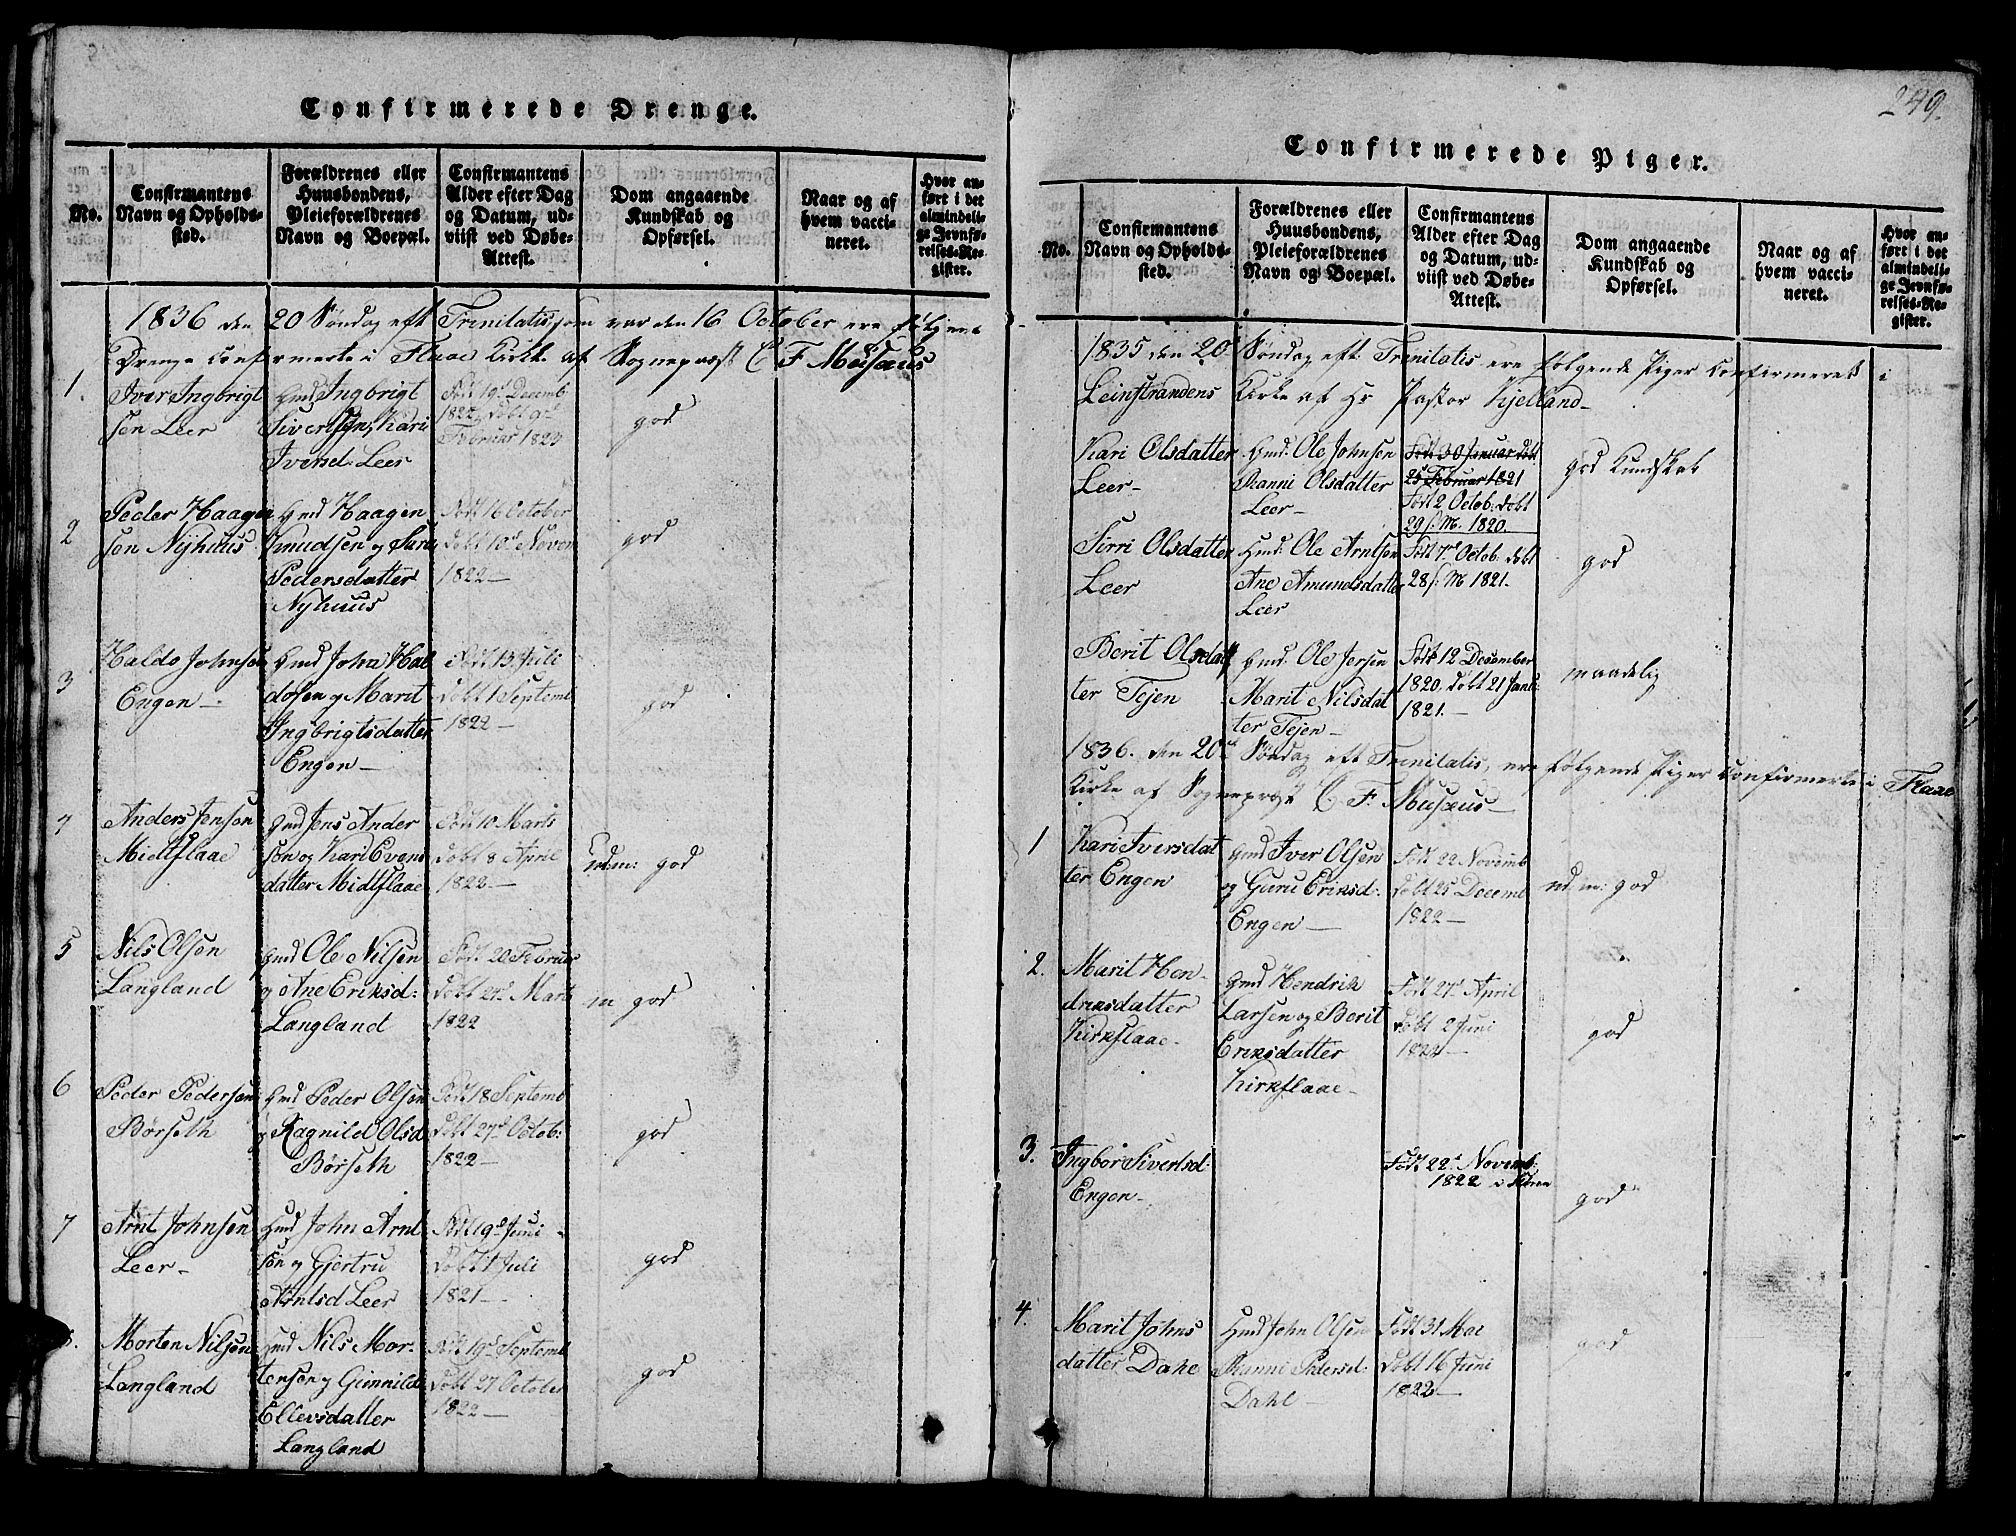 Confirmerede Drenge.
No.
Confirmantens
Navn og Opholds-
sted.
Forældrenes eller
Huusbondens,
Pleieforældrenes
Navn og Boepæl.
Confirmantens
Alder efter Dag
og Datum, ud-
viist ved Døbe-
Attest.
Dom angaaende
Kundskab og
Opførsel.
Naar og af
hvem vacci-
neret.
Hvor an-
ført i det
almindeli-
ge Jevnfø-
relses-Re-
gister.
1836 den 20 Søndag eft Trinitatis som var den 16 October ere følgene
Drenge Confirmerte i Flaae Kirke af Sognepræst C F Musæus
1.
Iver Ingbrigt
sen Leer
Gmd Ingbrigt
Sivertsen, Kari
Iversd. Leer
Født 19d Decemb
1822, døbt
Februar 1823
god
2
Peder Haagen
sen Nyhuus
Gmd Haagen
Knudsen og
Pedersdatter
Nyhuus
Født 16 October
døbt 10d Novem
1822 —
god
3
Haldo Johnsen
Engen —
Gmd John Hal
dosen og Marit
Ingbrigtsdatter
Engen —
Født 13 Juli
døbt 1 Septemb
1822 —
god
4
Anders Jensen
Midtflaae
Gmd Jens Ander
sen og Kari Evens
datter Midtflaae
Født 10 Marts
døbt 8 April
1822 —
god
5
Nils Olsen
Langland
Gmd Ole Nilsen
og Ane Eriksd:
Langland
Født 20 Februar
døbt 27d Marts
1822
m god
6
Peder Pedersen
Børseth
Gmd Peder Olsen
og Ragnild Olsd
Børseth
Født 18 Septemb
døbt 27d Octob:
1822 —
god
7
Arnt Johnsen
Leer —
Gmd John Arnt
sen og Gjertru
Arntsd Leer
Født 19d Juni
døbt 1 Juli
1821 —
god
8.
Morten Nilsen
Langland
Gmd Nils Mor-
tensen og Gunnild
Ellevsdatter
Langland
Født 19d Septemb
døbt 27 October
1822 —
god
249.
Confirmerede Piger.
No.
Confirmantens
Navn og Opholds-
sted.
Forældrenes eller
Huusbondens,
Pleieforældrenes
Navn og Boepæl.
Confirmantens
Alder efter Dag
og Datum, ud-
viist ved Døbe-
Attest.
Dom angaaende
Kundskab og
Opførsel.
Naar og af
hvem vacci-
neret.
Hvor an-
ført i det
almindeli-
ge Jevnfø-
relses-Re-
gister.
1835 den 20 Søndag eft: Trinitatis ere følgende Piger Confirmerede i
Leinstrandens Kirke af Hr Pastor Kjelland —
Kari Olsdatter
Leer —
Gmd: Ole Johnsen
Ranni Olsdatter
Leer —
Født 30 Januar døbt
25 Februar 1821
Født 2 Octob: døbt
29 s. M. 1820. —
god Kundskab
Sirri Olsdatter
Leer
Gmd: Ole Arntsen
Ane Amundsdatter
Leer
Født 7d Octob. døbt
28 s. M 1821.
god
Berit Olsdat
ter Tejen
Gmd: Ole Jensen
Marit Nilsdat
ter Tejen —
Født 12 December
1820, døbt 21 Janu
1821. —
maadelig
1836. den 20de Søndag eft Trinitatis, ere følgende Piger Confirmerte i Flaae
Kirke af Sognepræst C F. Musæus —
1
Kari Iversdat
ter Engen
Gmd Iver Olsen
og Guru Eriksd:
Engen —
Født 22 Novemb
døbt 25 Decemb
1822 —
ud. m: god
2.
Marit Hen-
driksdatter
Kirkflaae-
Gmd Hendrik
Larsen og Berit
Eriksdatter
Kirkflaae-
Født 27d April
døbt 2 Juni
1822 —
god
3.
Ingbor Sivertsd:
Engen-
Født 22d Novemb:
1822 i
god
4.
Marit Johns
datter Dahl
Gmd John Olsen
Ranni Pedersd.
Dahl —
Født 31 Mai
døbt 16 Juni
1822 —
god